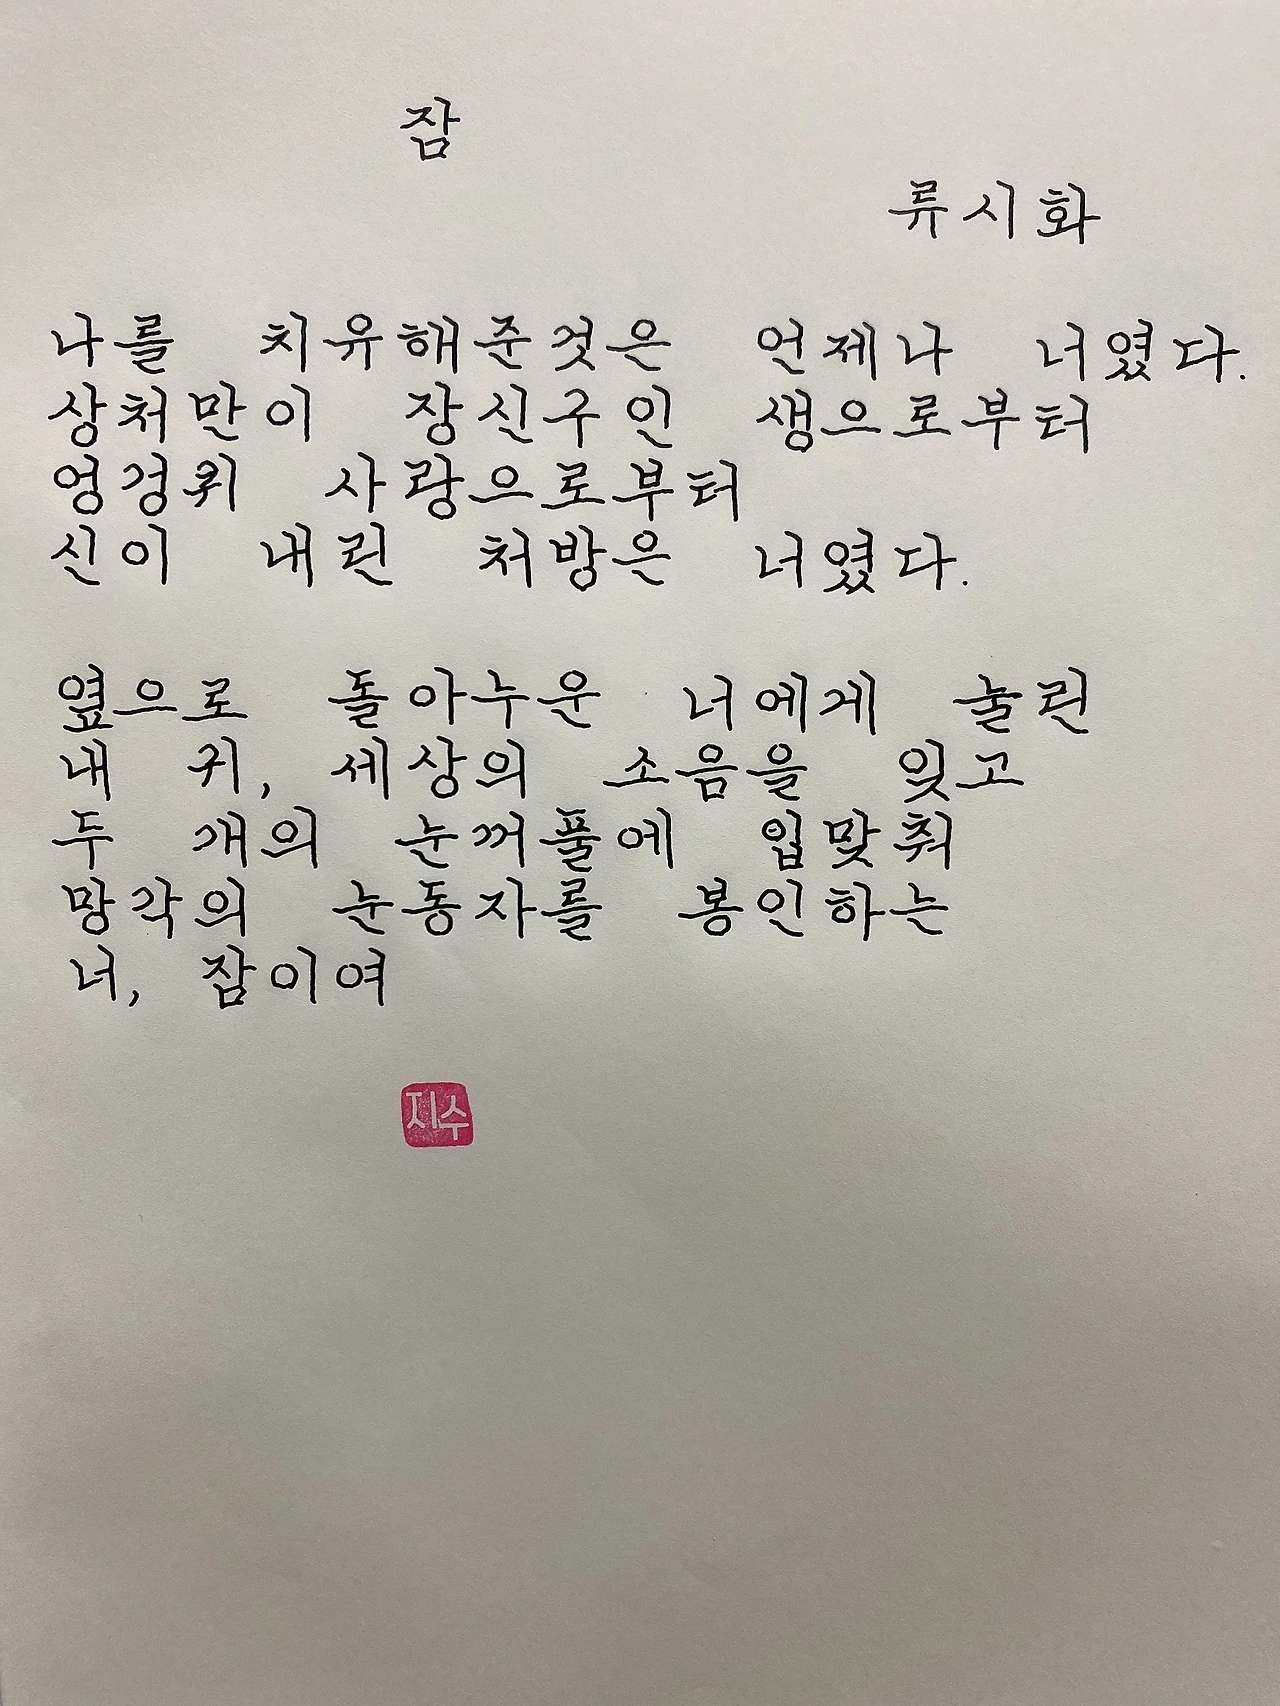 잠
류시화
나를 치유해준것은 언제나 너였다.
상처만이 장신구인 생으로부터
엉겅퀴 사랑으로부터
신이 내린 처방은 너였다.
옆으로 돌아누운 너에게 눌린
내 귀, 세상의 소음을 잊고
두 개의 눈꺼풀에 입맞춰
망각의 눈동자를 봉인하는
너, 잠이여
지수